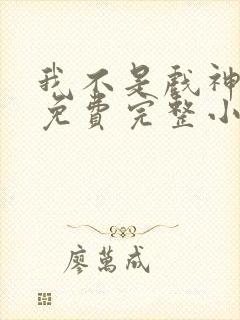 我不是戏神
免费完整小
廖萬成